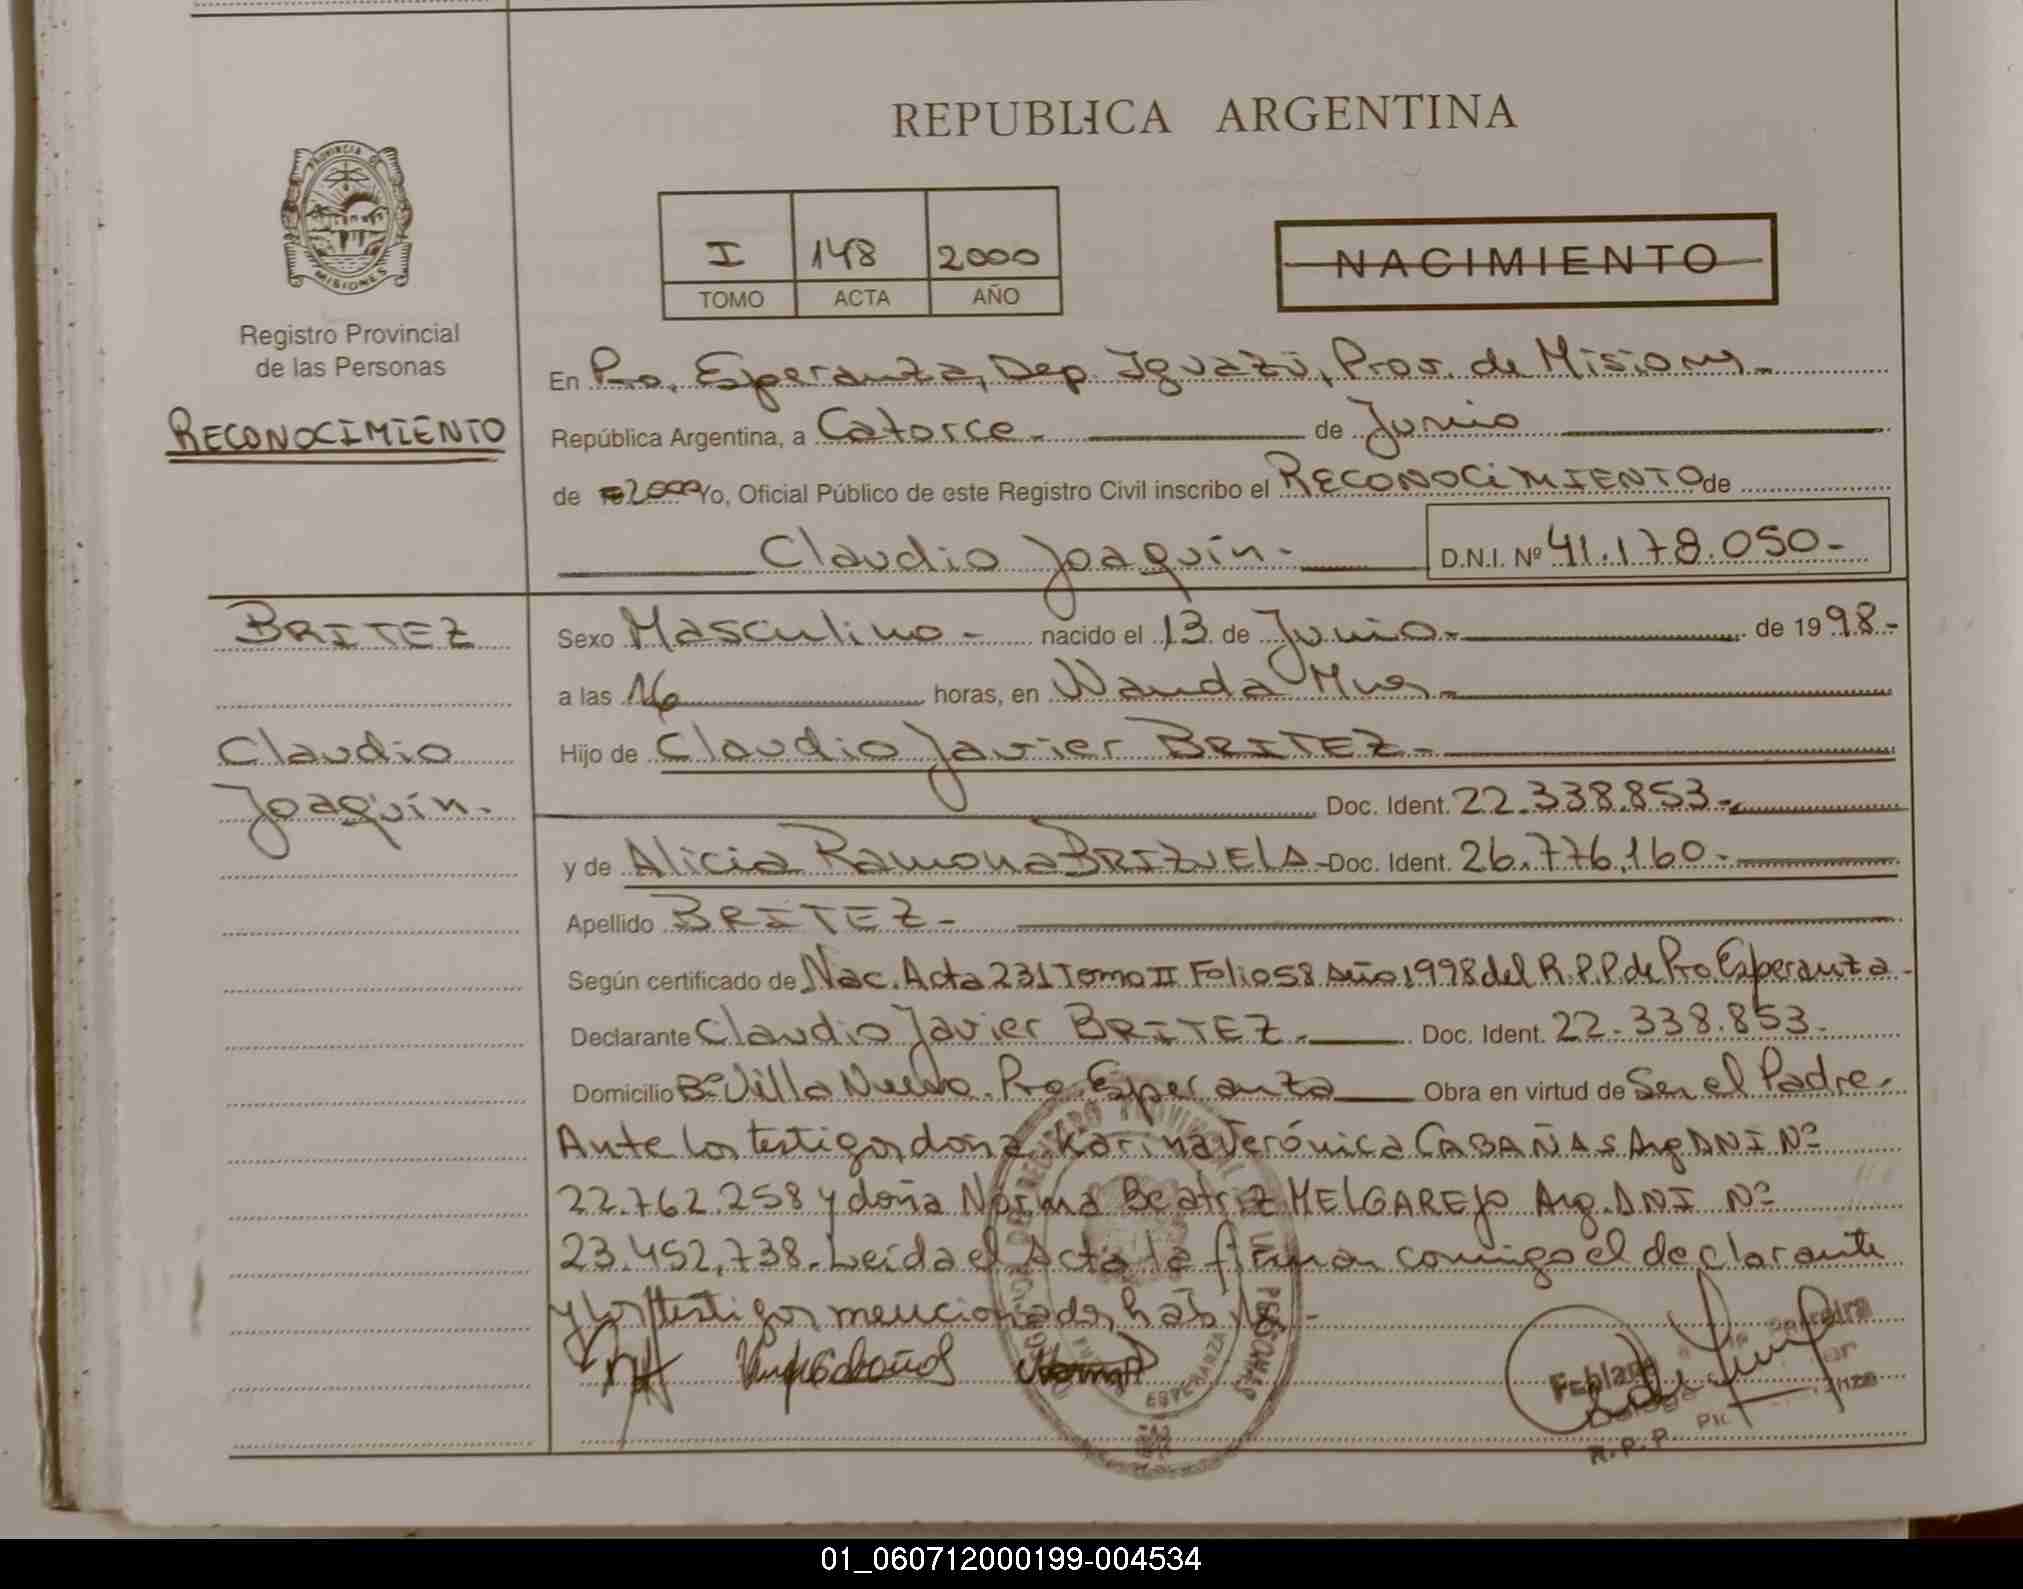 REPUBLICA ARGENTINA
PROVINCIA DE
MISIONES
Registro Provincial
de las Personas
RECONOCIMIENTO
I 148 2000
TOMO ACTA AÑO
NACIMIENTO
En Pto. Esperanza, Dep. Iguazú, Prov. de Misiones.-
República Argentina, a Catorce.- de Junio
de 2000 Yo, Oficial Público de este Registro Civil inscribo el RECONOCIMIENTO de
Claudio Joaquín.- D.N.I. Nº 41.178.050.-
BRITEZ
Claudio
Joaquín.-
Sexo Masculino.- nacido el 13 de Junio.- de 1998.-
a las 16 horas, en Wanda Mnes.-
Hijo de Claudio Javier BRITEZ.-
Doc. Ident. 22.338.853.-
y de Alicia Ramona BRIZUELA.- Doc. Ident. 26.776.160.-
Apellido BRITEZ.-
Según certificado de Nac. Acta 231 Tomo II Folio 58 Año 1998 del R.P.P. de Pto. Esperanza.-
Declarante Claudio Javier BRITEZ.- Doc. Ident. 22.338.853.-
Domicilio Bº Villa Nueva. Pto. Esperanza Obra en virtud de Ser el Padre.-
Ante los testigos doña Karina Verónica CABAÑAS Arg. DNI Nº
22.762.258 y doña Norma Beatriz MELGAREJO Arg. DNI Nº
23.452.738. Leída el Acta la firman conmigo el declarante
y los testigos mencionados
ESPERANZA
R.P.P.
01_060712000199-004534